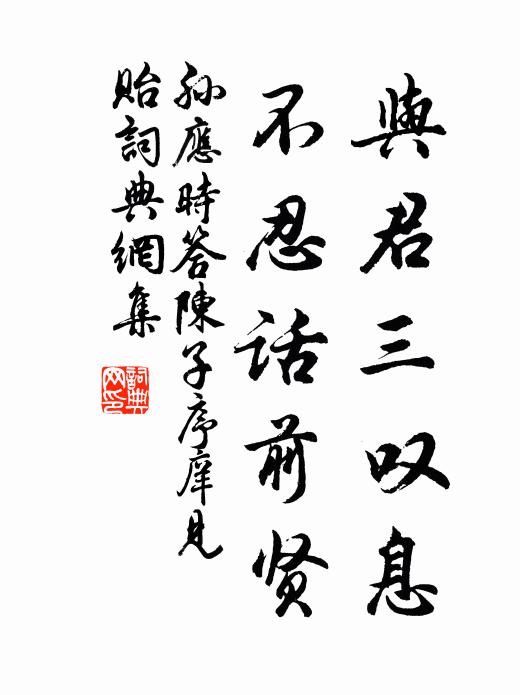 與君三叹息
不忍话前贤
孙應時答陳子序庠見
貽詞典網集
詞典網印